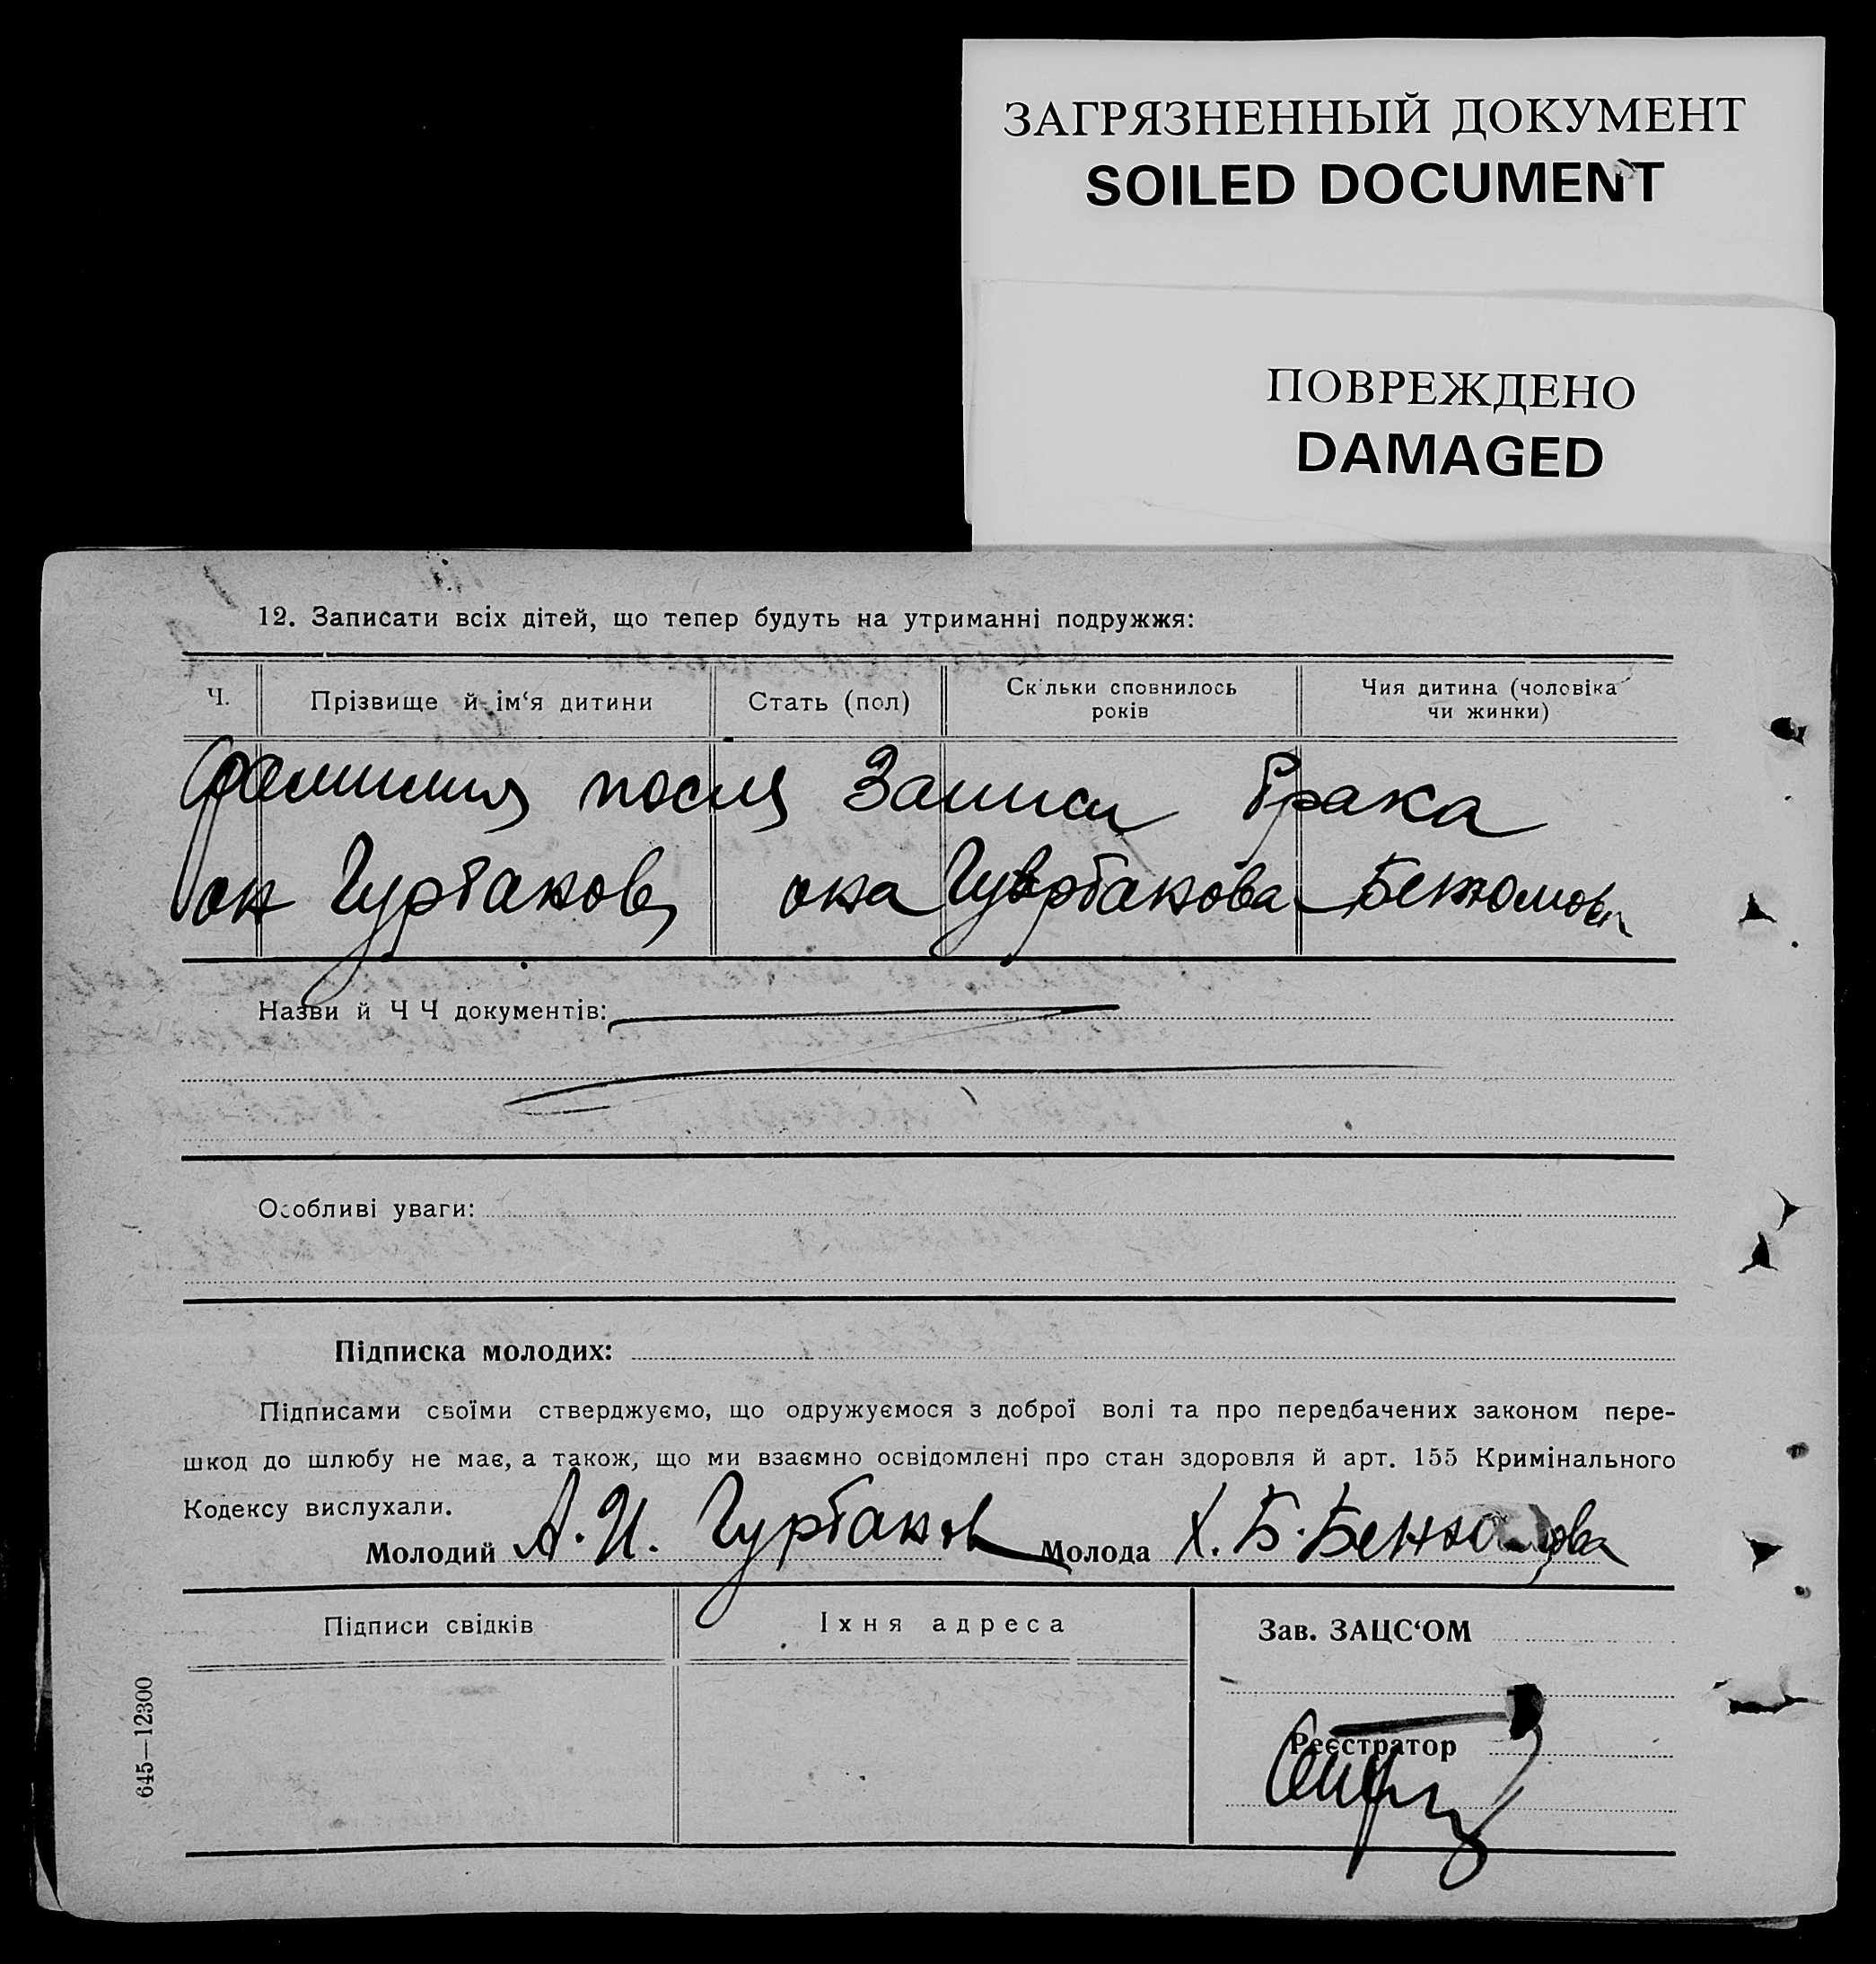 ЗАГРЯЗНЕННЫЙ ДОКУМЕНТ
SOILED DOCUMENT
ПОВРЕЖДЕНО
DAMAGED
12. Записати всіх дітей, що тепер будуть на утриманні подружжя:
Ч. Прізвище й ім‘я дитини Стать (пол) Скільки сповнилось років Чия дитина (чоловіка чи жинки)
фамилия после Записи брака
он Чурбаков она Чурбакова
Назви й Ч Ч документів:
Особливі уваги:
Підписка молодих:
Підписами своїми стверджуємо, що одружуємося з доброї волі та про передбачених законом пере-
шкод до шлюбу не має, а також, що ми взаємно освідомлені про стан здоровля й арт. 155 Кримінального
Кодексу вислухали.
Молодий А. И. Чурбаков Молода Х. Б.
Підписи свідків Іхня адреса Зав. ЗАЦС‘ОМ
Реєстратор
645—12300